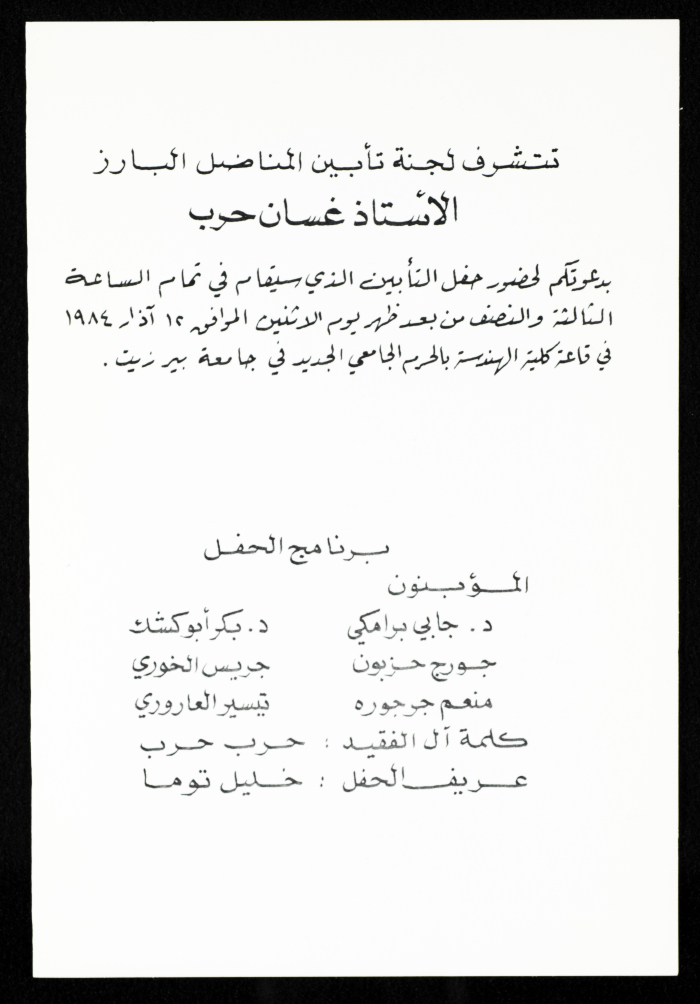 تتشرف لجنة تأبين المناضل البارز
الأستاذ غسان حرب
بدعوتكم لحضور حفل التأبين الذي سيقام في تمام الساعة
الثالثة والنصف من بعد ظهر يوم الاثنين الموافق ١٢ آذار ١٩٨٤
في قاعة كلية الهندسة بالحرم الجامعي الجديد في جامعة بير زيت .
برنامج الحفل
المؤبنون
د. جابي برامكي د. بكر أبو كشك
جورج حزبون جريس الخوري
منعم جرجوره تيسير العاروري
كلمة آل الفقيد : حرب حرب
عريف الحفل : خليل توما